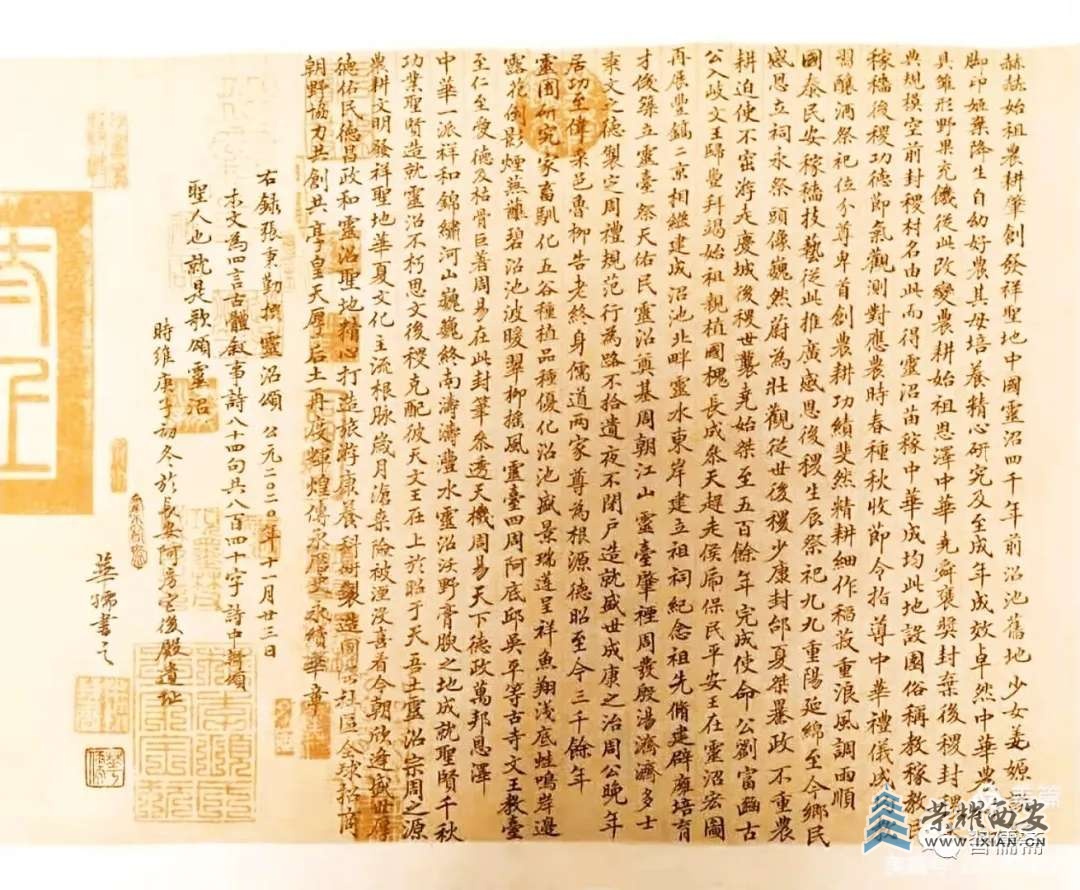 赫赫始祖農耕肇創發祥聖地中國靈沼四千年前沼池舊地少女姜嫄
脚印姬棄降生自幼好農其母培養精心研究及至成年成效卓然中華農
具雛形野果充饑從此改變農耕始祖恩澤中華堯舜褒獎封棄後稷封
典規模空前封稷村名由此而得靈沼苗稼中華成均此地設園俗稱教稼教
稼穡後稷功德節氣觀測對應農時春種秋收節令指導中華禮儀成
習釀酒祭祀位分尊卑首創農耕功績斐然精耕細作稻菽重浪風調雨順
國泰民安稼穡技藝從此推廣感恩後稷生辰祭祀九九重陽延綿至今鄉民
感恩立祠永祭頭像巍然蔚為壯觀從世後稷少康封邰夏桀暴政不重農
耕迫使不窋將走慶城後稷世襲堯始桀至五百餘年完成使命公劉富豳古
公入岐文王歸豐拜謁始祖親植國槐長成參天趕走侯扁保民平安王在靈沼宏圖
再展豐鎬二京相繼建成沼池北畔靈水東岸建立祖祠紀念祖先脩建辟雍培育
才俊築立靈臺祭天佑民靈沼奠基周朝江山靈臺肇禋周發殷湯濟濟多士
秉文之德製定周禮規范行為路不拾遺夜不閉戶造就盛世成康之治周公晚年
居功至偉采邑魯柳告老終身儒道兩家尊為根源德昭至今三千餘年
靈囿研究家畜馴化五谷種植品種優化沼池盛景瑞蓮呈祥魚翔淺底蛙鳴岸邊
靈花倒影煙蕪蘸碧沼池波暖翠柳搖風靈臺四周阿底邱吳平等古寺文王教臺
至仁至愛德及枯骨巨著周易在此封筆參透天機周易天下德政萬邦恩澤
中華一派祥和錦繡河山巍巍終南濤濤灃水靈沼沃野膏腴之地成就聖賢千秋
功業聖賢造就靈沼不朽思文後稷克配彼天文王在上於昭于天吾土靈沼宗周之源
農耕文明發祥聖地華夏文化主流根脉歲月滄桑險被湮沒喜看今朝欣逢盛世厚
德佑民德昌政和靈沼聖地精心打造旅游康養科研製造園區社區全球招商
朝野協力共創共享皇天厚后土再度輝煌傳承歷史永續華章
右錄張秉勤撰靈沼頌 公元二〇二〇年十一月廿三日
本文為四言古體敘事詩八十四句共八百四十字詩中所頌
聖人也就是歌頌靈沼
時維庚子初冬於長安阿房宮後殿遺址
華儒書之
荣耀西安
WWW.IXIAN.CN